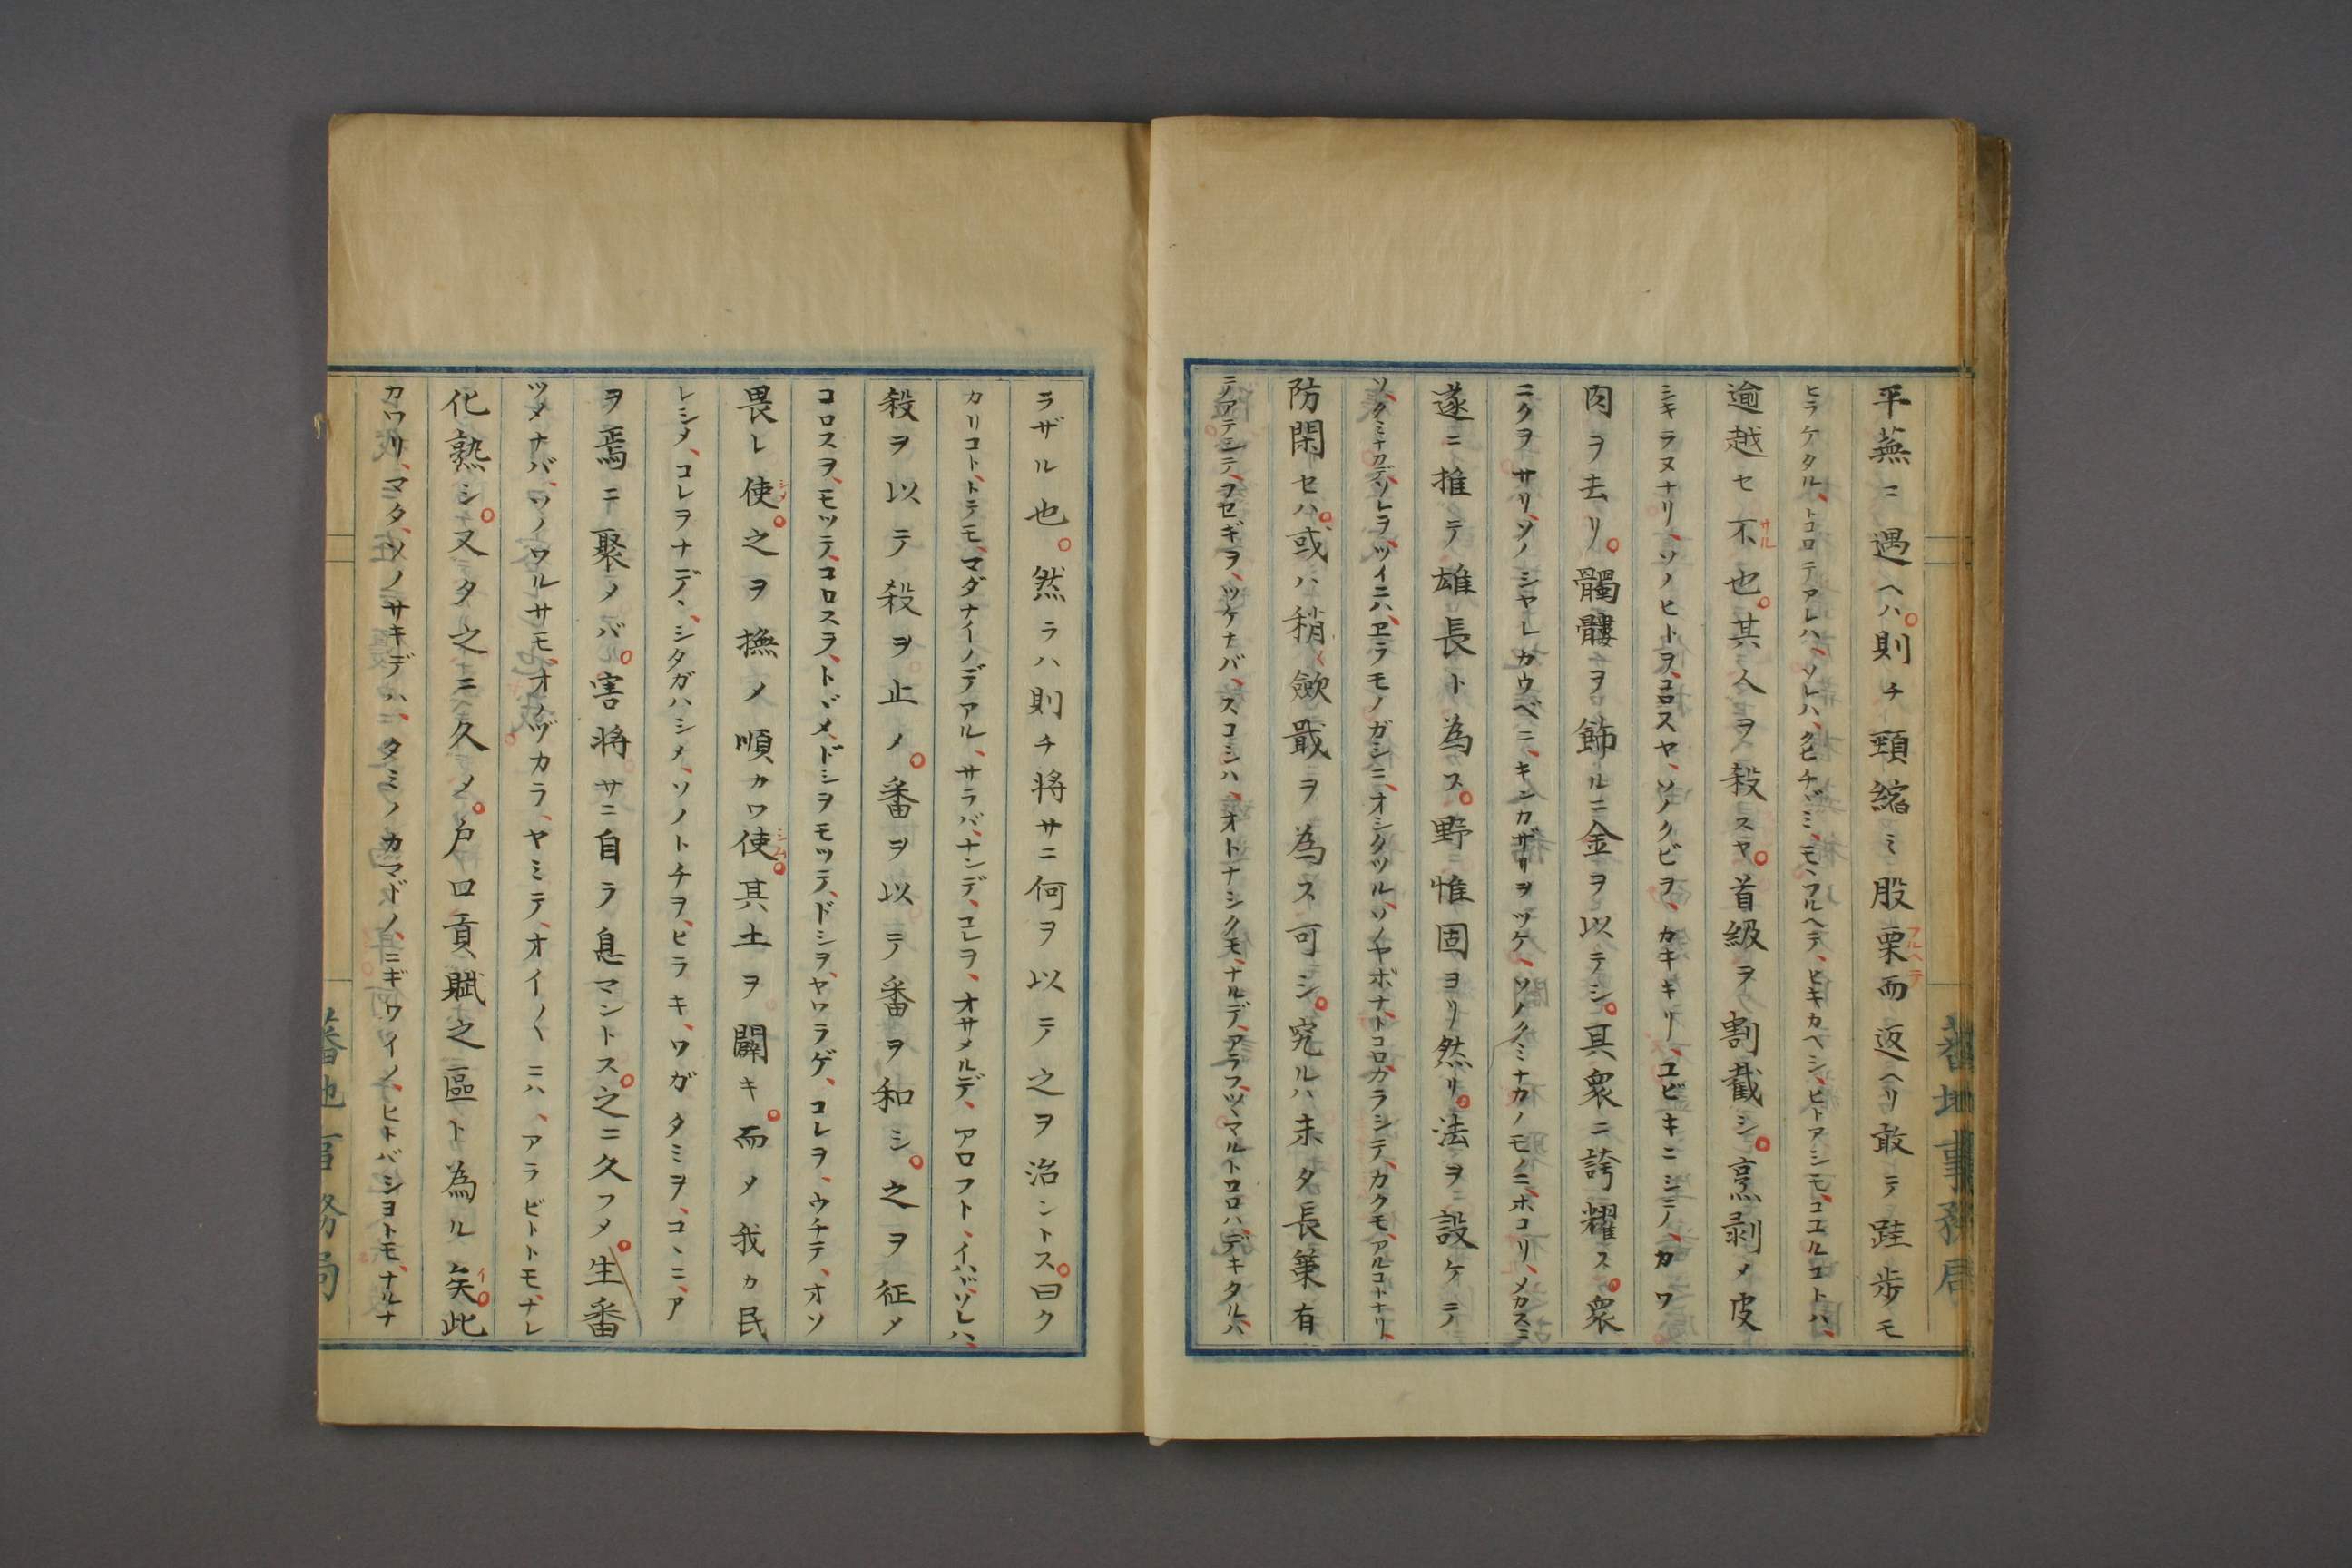 平蕪ニ遇ヘハ則チ頸縮ミ股栗フルヘテ而返ヘリ敢テ跬歩モ
ヒラケタル、トコロテアレハ、ソレハ、クビチヾミ、モヽフルヘテ、ヒキカヘシ、ヒトアシモ、コユルコトハ、
逾越セ不サル也其人ヲ殺スヤ首級ヲ割截シ烹剥メ皮
シキラヌナリ、ソノヒトヲ、コロスヤ、ソノクビヲ、カキキリ、ユビキニシニノ、カワ
肉ヲ去リ髑髏ヲ飾ルニ金ヲ以テシ其衆ニ誇耀ス衆
ニクヲサリ、ソノシヤレカウベニ、キンカザリヲツケ、ソノクミナカノモノニ、ホコリ、メカスニ
遂ニ推テ雄長ト為ス野惟固ヨリ然リ法ヲ設ケテ
ソ、クミナカデ、ソレヲ、ツイニハ、ヱラモノガシニ、オシタツル、ソノヤボナ、トコロカラシテ、カクモ、アルコトナリ、
防閑セハ或ハ稍〱歛戢ヲ為ス可シ究ルハ未タ長筞有
ミノアテシテ、フセギヲ、ツケナバ、スコシハ、オトナシクモ、ナルデ、アラフ、ツマルトロロハ、デキタルハ
蕃地事務局
ラザル也然ラハ則チ将サニ何ヲ以テ之ヲ治ントス曰ク
カリコト、トテモ、マダナイノデアル、サラバ、ナンデ、コレヲ、オサメルデ、アロフト、イハバ、ソレハ、
殺ヲ以テ殺ヲ止ノ番ヲ以テ番ヲ和シ之ヲ征ノ
コロスヲ、モツテ、コロスヲ、トヾメ、ドシヲモツテ、ドシヲ、ヤワラゲ、コレヲ、ウチテ、オソ
畏レ使シメ之ヲ撫ノ順カワ使シム其土ヲ闢キ而メ我カ民
レシメ、コレヲナデヽ、シタガハシメ、ソノトチヲ、ヒラキ、ワガタミヲ、コヽニ、ア
ヲ焉ニ聚メバ害将サニ自ラ息マントス之ニ久フメ生番
ツメナバ、ソノワルサモ、オノヅカラ、ヤミテ、オイ〱ニハ、アラビトトモ、ナレ
化熟シ又タ之ニ久メ戸口貢賦之區ト為ル矣イ此
カワリ、マタ、ソノサキデハ、タミノカマドノ、ニギワイノ、ヒトバシヨトモ、ナルナ
蕃地事務局